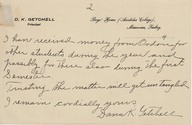 2
D. K. GETCHELL
Principal
Boys' Home (Anatolia College)
I have received money from "Doxors" for
other students during the year and
possibly for these also during the first
Semester.
Trusting the matter will get untangled
I remain cordially yours
Dana K. Getchell